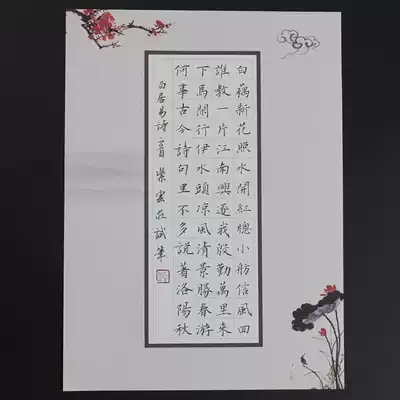 白藕新花照水開紅牎小舫信風回
誰教一片江南興逐我殷勤萬里來
下馬閑行伊水頭凉風清景勝春游
何事古今詩句里不多說著洛陽秋
白居易詩二首 紫雲莊試筆